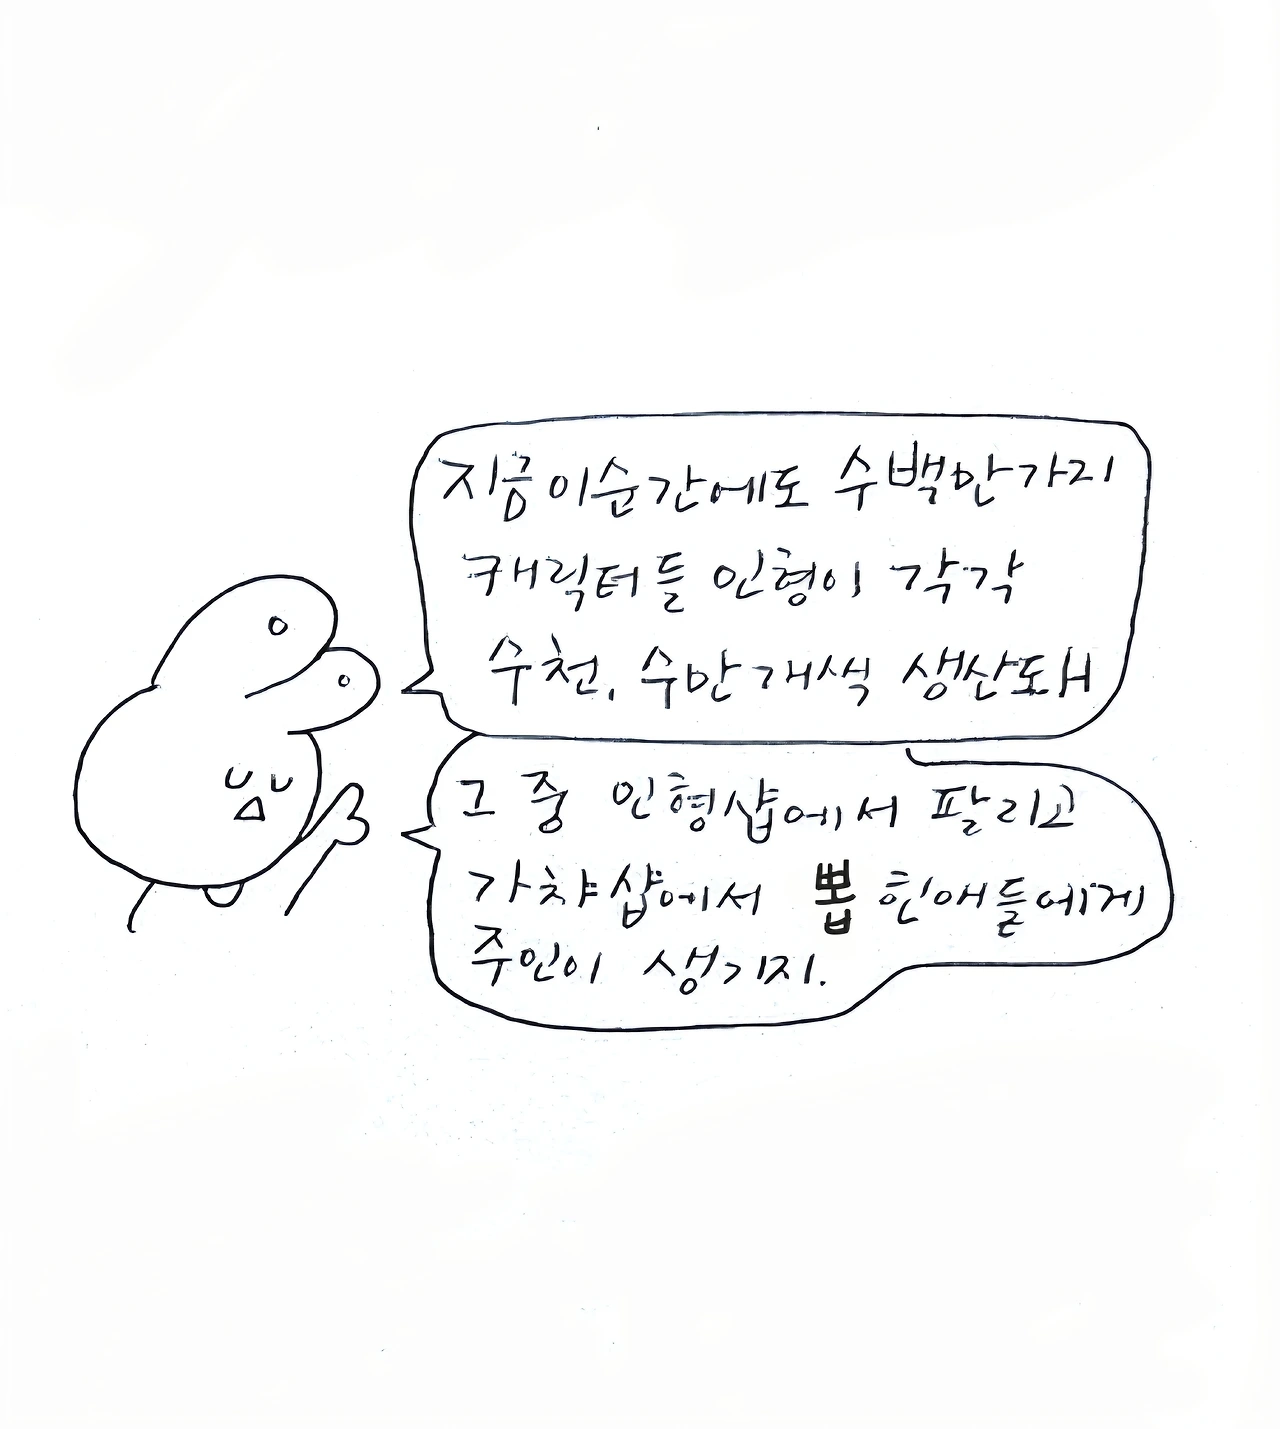 지금이순간에도 수백만가지
캐릭터들 인형이 각각
수천, 수만개씩 생산돼
그 중 인형샵에서 팔리고
가챠샵에서 뽑힌애들에게
주인이 생기지.